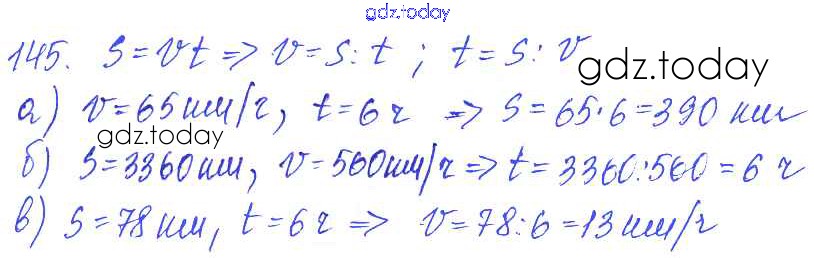 gdz.today
145. S = vt => v = S : t ; t = S : v
gdz.today
а) v = 65 км/ч, t = 6 ч => S = 65·6 = 390 км
gdz.today
б) S = 3360 км, v = 560 км/ч => t = 3360:560 = 6 ч
в) S = 78 км, t = 6 ч => v = 78:6 = 13 км/ч